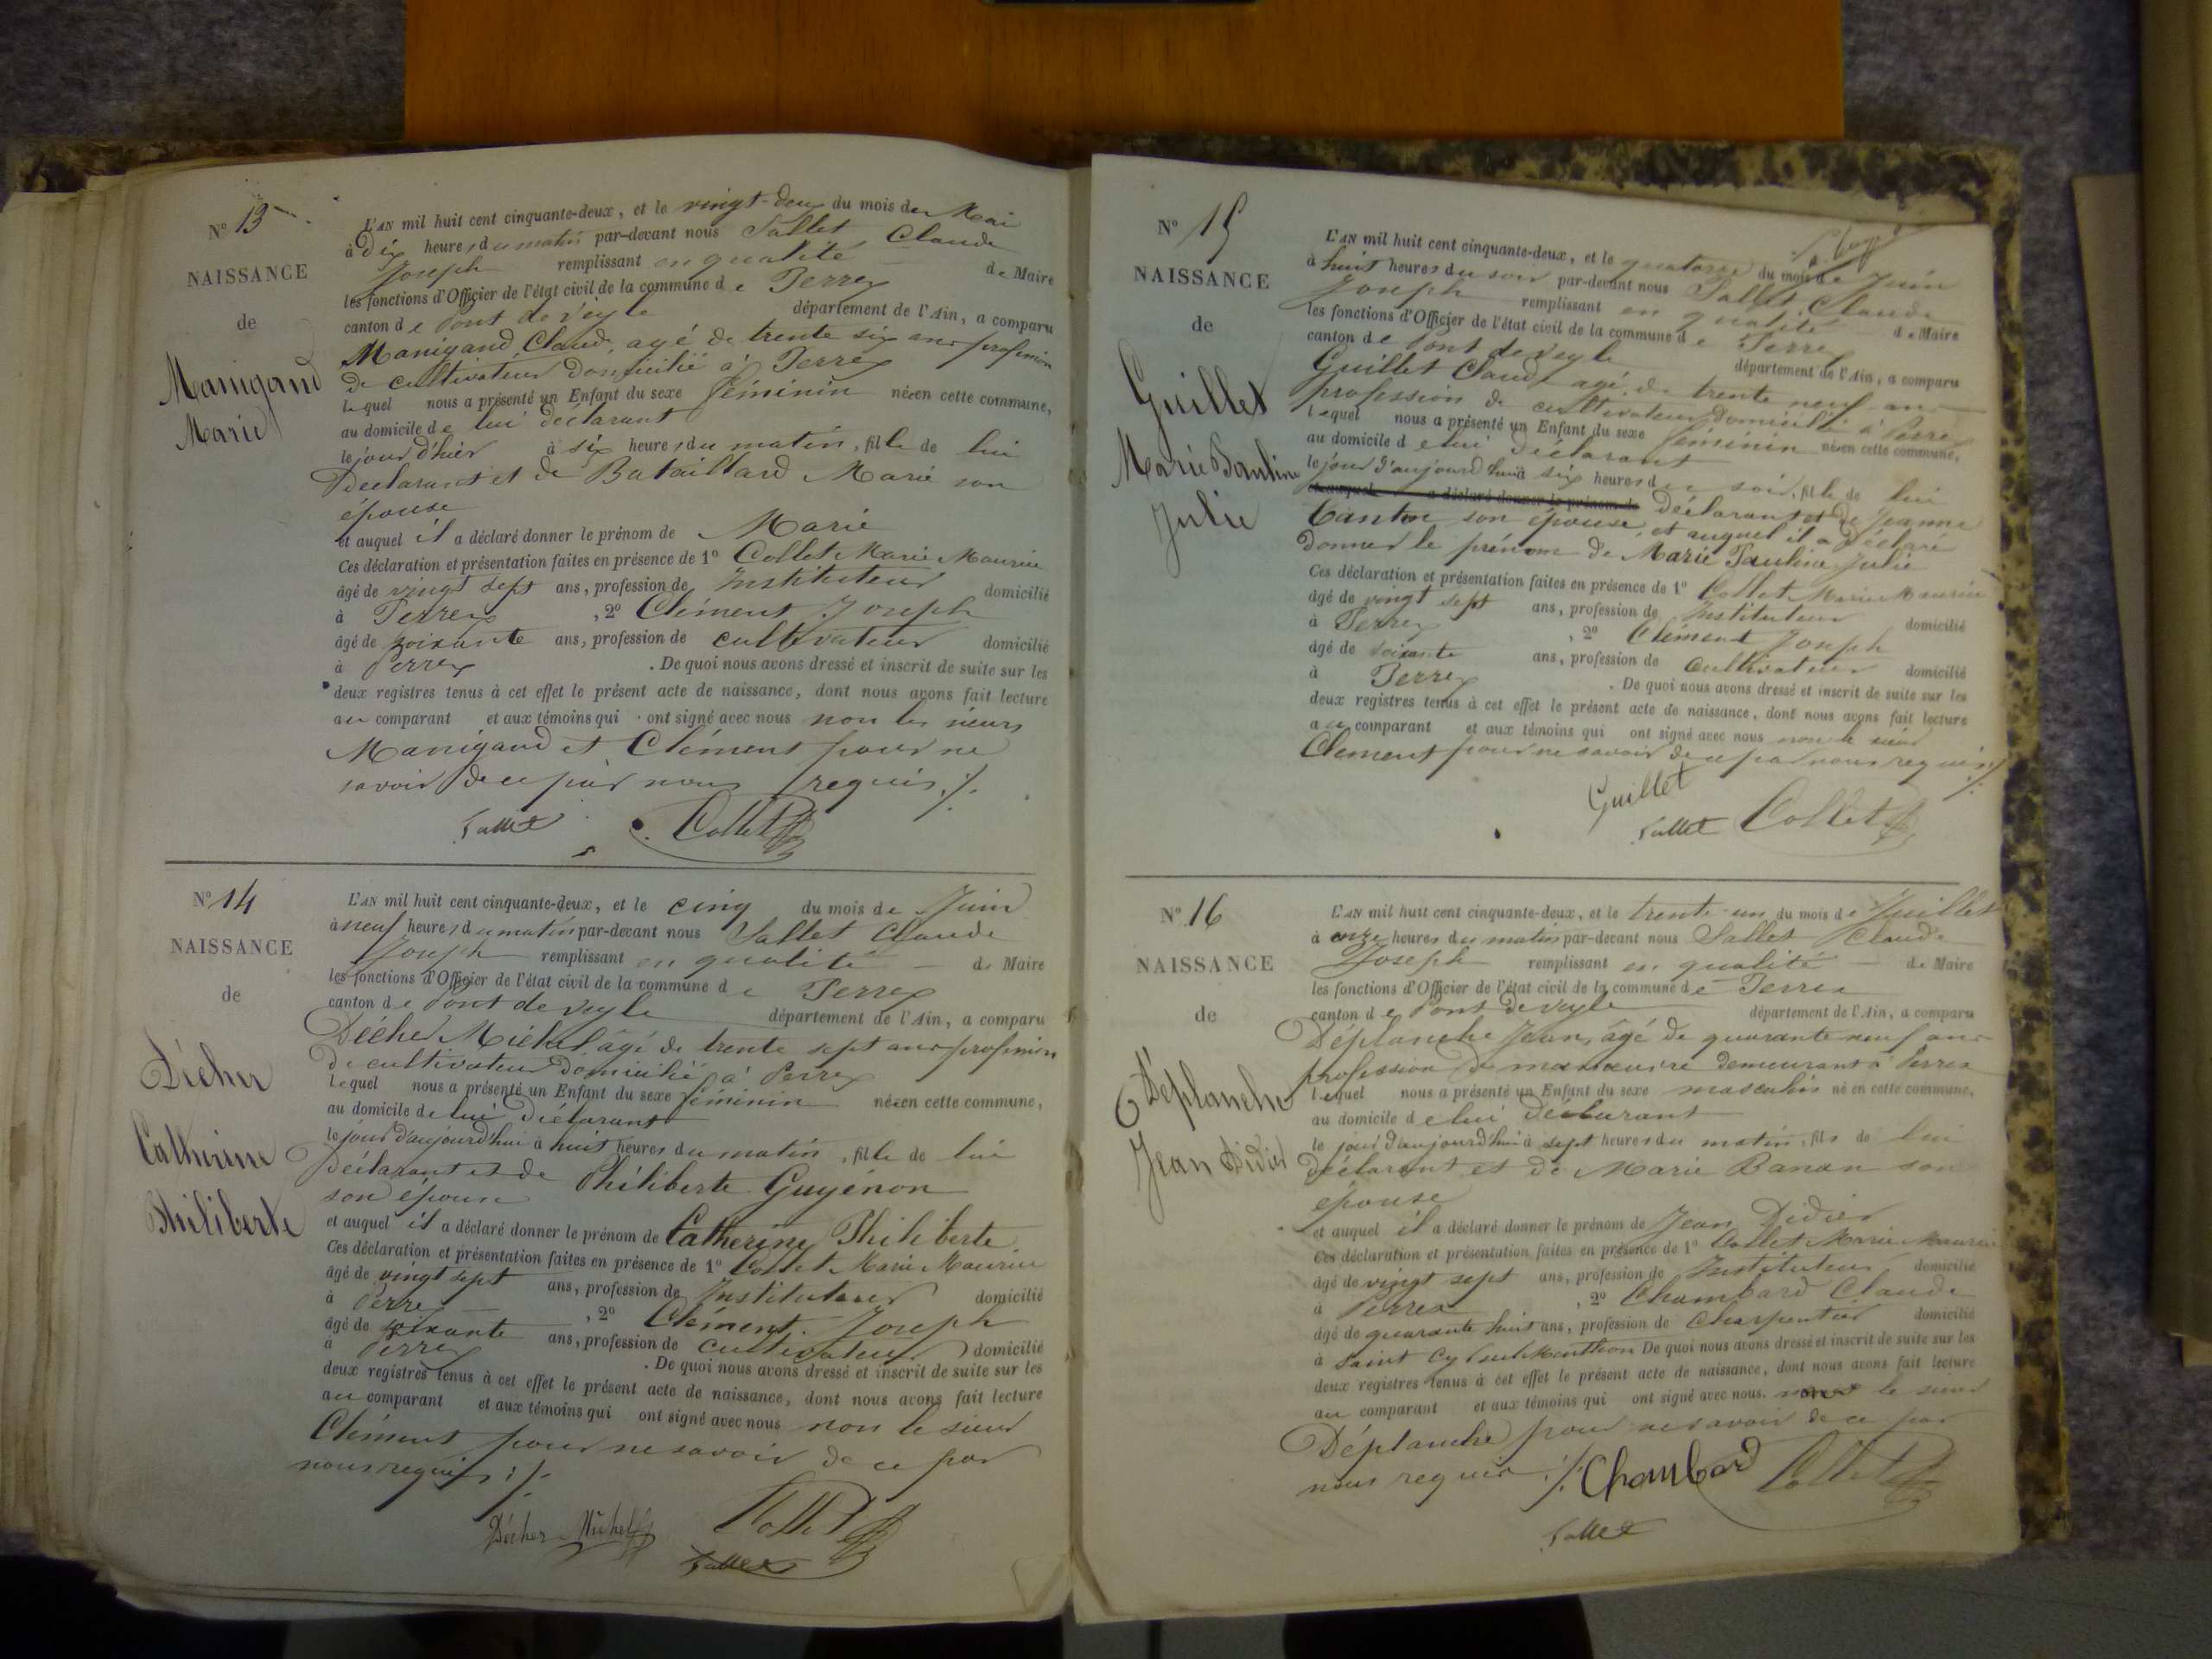 N° 13
NAISSANCE
de
Manigand
Marie
L'AN mil huit cent cinquante-deux, et le vingt-deux du mois de Mai
à Dix heures du matin par-devant nous Sallet Claude
Joseph remplissant en qualité de Maire
les fonctions d'Officier de l'état civil de la commune de Perrex
canton de Pont de Veyle département de l'Ain, a comparu
Manigand Claude, agé de trente six ans profession
de cultivateur domicilié à Perrex
lequel nous a présenté un Enfant du sexe féminin née en cette commune,
au domicile de lui déclarant
le jour d'hier à six heures du matin, fille de lui
Déclarant et de Bataillard Marie son
épouse
et auquel il a déclaré donner le prénom de Marie
Ces déclaration et présentation faites en présence de 1° Collet Marie Maurice
âgé de vingt sept ans, profession de Instituteur domicilié
à Perrex, 2° Clément Joseph
âgé de soixante ans, profession de cultivateur domicilié
à Perrex. De quoi nous avons dressé et inscrit de suite sur les
deux registres tenus à cet effet le présent acte de naissance, dont nous avons fait lecture
au comparant et aux témoins qui ont signé avec nous non les sieurs
Manigand et Clément pour ne
savoir de ce par nous requis ./.
Sallet Collet
N° 14
NAISSANCE
de
Décher
Catherine
Philiberte
L'AN mil huit cent cinquante-deux, et le cinq du mois de Juin
à neuf heures du matin par-devant nous Sallet Claude
Joseph remplissant en qualité de Maire
les fonctions d'Officier de l'état civil de la commune de Perrex
canton de Pont de veyle département de l'Ain, a comparu
Décher Michel âgé de trente sept ans profession
de cultivateur domicilié à Perrex
lequel nous a présenté un Enfant du sexe féminin née en cette commune,
au domicile de lui Déclarant
le jour d'aujourd'hui à huit heures du matin, fille de lui
Déclarant et de Philiberte Guyénon
son épouse
et auquel il a déclaré donner le prénom de Catherine Philiberte
Ces déclaration et présentation faites en présence de 1° Collet Marie Maurice
âgé de vingt sept ans, profession de Instituteur domicilié
à Perrex, 2° Clément Joseph
âgé de soixante ans, profession de cultivateur domicilié
à Perrex. De quoi nous avons dressé et inscrit de suite sur les
deux registres tenus à cet effet le présent acte de naissance, dont nous avons fait lecture
au comparant et aux témoins qui ont signé avec nous non le sieur
Clément pour ne savoir de ce par
nous requis ./.
Décher Michel Collet
Sallet
N° 15
NAISSANCE
de
Guillet
Marie Pauline
Julie
L'AN mil huit cent cinquante-deux, et le quatorze du mois de Juin
à huit heures du soir par-devant nous Sallet Claude
Joseph remplissant en qualité de Maire
les fonctions d'Officier de l'état civil de la commune de Perrex
canton de Pont de veyle département de l'Ain, a comparu
Guillet Claude agé de trente neuf ans
profession de cultivateur domicilié à Perrex
lequel nous a présenté un Enfant du sexe féminin née en cette commune,
au domicile de lui déclarant
le jour d'aujourd'hui à six heures du soir, fille de lui
et auquel a déclaré donner le prénom de Déclarant et de Jeanne
son épouse, et auquel il a déclaré
donner le prénom de Marie Pauline Julie
Ces déclaration et présentation faites en présence de 1° Collet Marie Maurice
âgé de vingt sept ans, profession de Instituteur domicilié
à Perrex, 2° Clément Joseph
âgé de soixante ans, profession de cultivateur domicilié
à Perrex. De quoi nous avons dressé et inscrit de suite sur les
deux registres tenus à cet effet le présent acte de naissance, dont nous avons fait lecture
au comparant et aux témoins qui ont signé avec nous non le sieur
Clément pour ne savoir de ce par nous requis ./.
Guillet
Sallet Collet
N° 16
NAISSANCE
de
Déplanche
Jean Didier
L'AN mil huit cent cinquante-deux, et le trente-un du mois de Juillet
à onze heures du matin par-devant nous Sallet Claude
Joseph remplissant en qualité de Maire
les fonctions d'Officier de l'état civil de la commune de Perrex
canton de Pont de veyle département de l'Ain, a comparu
Déplanche Jean, âgé de quarante neuf ans
profession de manœuvre demeurant à Perrex
lequel nous a présenté un Enfant du sexe masculin né en cette commune,
au domicile de lui déclarant
le jour d'aujourd'hui à sept heures du matin, fils de lui
déclarant et de Marie Banan son
épouse
et auquel il a déclaré donner le prénom de Jean Didier
Ces déclaration et présentation faites en présence de 1° Collet Marie Maurice
âgé de vingt sept ans, profession de Instituteur domicilié
à Perrex, 2° Chambard Claude
âgé de quarante huit ans, profession de Charpentier domicilié
à Saint Cyr sur Menthon De quoi nous avons dressé et inscrit de suite sur les
deux registres tenus à cet effet le présent acte de naissance, dont nous avons fait lecture
au comparant et aux témoins qui ont signé avec nous. non le sieur
Déplanche pour ne savoir de ce par
nous requis ./. Chambard Collet
Sallet